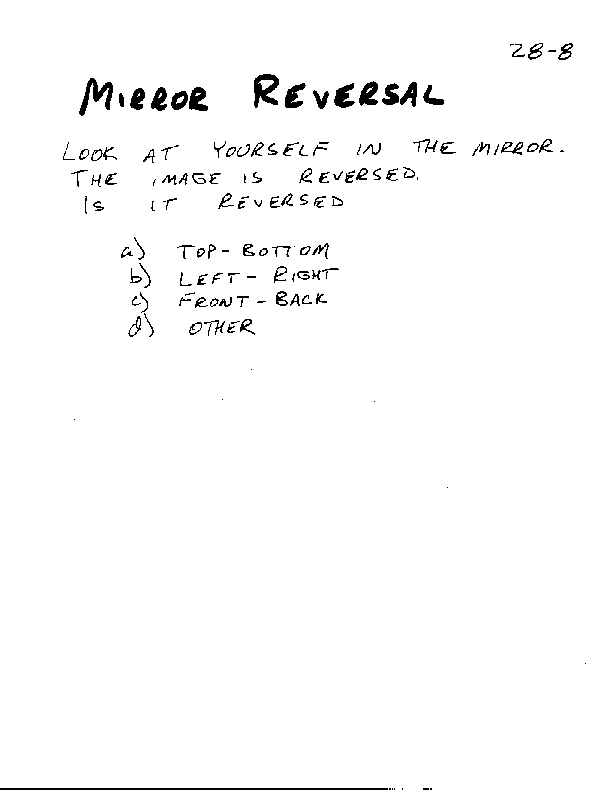 28-8
MIRROR REVERSAL
LOOK AT YOURSELF IN THE MIRROR.
THE IMAGE IS REVERSED.
IS IT REVERSED
a) TOP-BOTTOM
b) LEFT-RIGHT
c) FRONT-BACK
d) OTHER